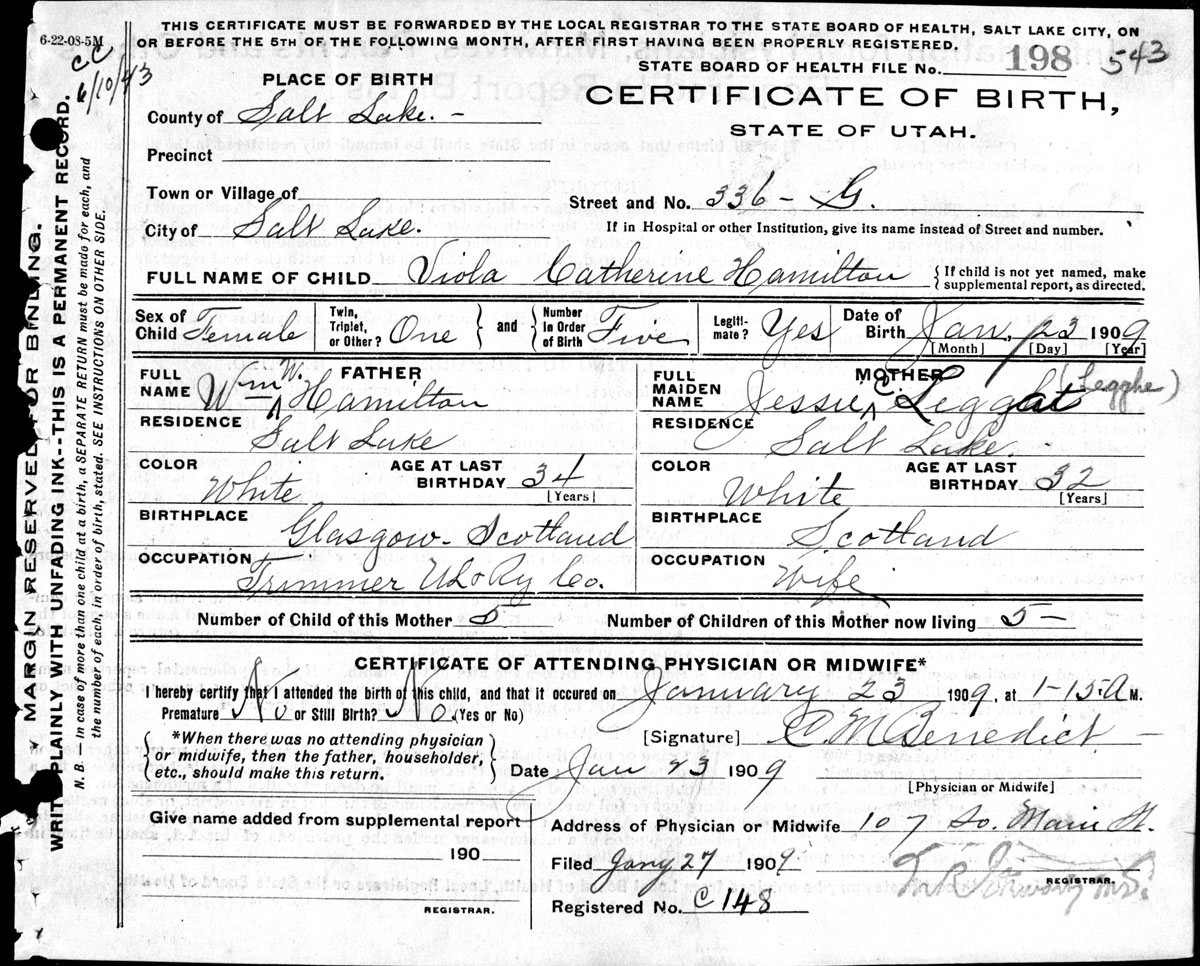 THIS CERTIFICATE MUST BE FORWARDED BY THE LOCAL REGISTRAR TO THE STATE BOARD OF HEALTH, SALT LAKE CITY, ON
OR BEFORE THE 5TH OF THE FOLLOWING MONTH, AFTER FIRST HAVING BEEN PROPERLY REGISTERED.
6-22-08-5M
CC
6/10/43
STATE BOARD OF HEALTH FILE No. 198 543
PLACE OF BIRTH
CERTIFICATE OF BIRTH,
STATE OF UTAH.
County of Salt Lake. -
Precinct
Town or Village of
Street and No. 336 - G.
City of Salt Lake.
If in Hospital or other Institution, give its name instead of Street and number.
FULL NAME OF CHILD Viola Catherine Hamilton { If child is not yet named, make
supplemental report, as directed.
Sex of Child Female Twin, Triplet, or Other? One } and { Number in Order of Birth Five Legiti-mate? Yes Date of Birth Jan, 23 1909
[Month] [Day] [Year]
FATHER
FULL NAME Wm W. Hamilton
RESIDENCE Salt Lake
COLOR White AGE AT LAST BIRTHDAY 34 [Years]
BIRTHPLACE Glasgow - Scotland
OCCUPATION Trimmer U L & Ry Co.
MOTHER
FULL MAIDEN NAME Jessie C. Leggat (Legghe)
RESIDENCE Salt Lake -
COLOR White AGE AT LAST BIRTHDAY 32 [Years]
BIRTHPLACE Scotland
OCCUPATION Wife
Number of Child of this Mother 5 Number of Children of this Mother now living 5 -
CERTIFICATE OF ATTENDING PHYSICIAN OR MIDWIFE*
I hereby certify that I attended the birth of this child, and that it occured on January 23 1909, at 1-15 A M.
Premature No or Still Birth? No. (Yes or No)
{ *When there was no attending physician
or midwife, then the father, householder,
etc., should make this return. }
[Signature] C M Benedict -
Date Jan 23 1909
[Physician or Midwife]
Give name added from supplemental report
190
REGISTRAR.
Address of Physician or Midwife 107 So. Main St.
Filed Jany 27 1909
REGISTRAR.
Registered No. C 148
MARGIN RESERVED FOR BINDING.
WRITE PLAINLY WITH UNFADING INK--THIS IS A PERMANENT RECORD.
N. B. — In case of more than one child at a birth, a SEPARATE RETURN must be made for each, and
the number of each, in order of birth, stated. SEE INSTRUCTIONS ON OTHER SIDE.